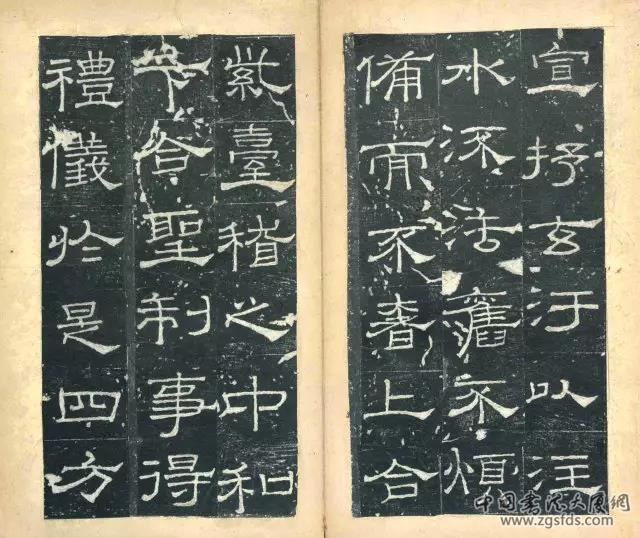 宣抒玄汙以注
水流法舊不煩
備而不奢上合
紫臺稽之中和
下合聖制事得
禮儀於是四方
中国书法大厦网
www.zgsfds.com